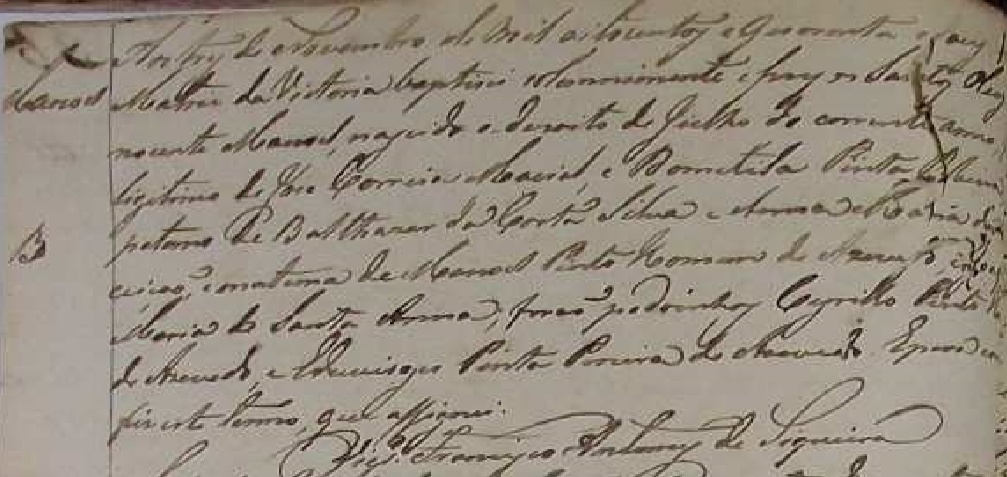 Manoel
Aos tres de Novembro de mil oitocentos e quarenta e seis
Matriz da Victoria baptisei solemnemente e puz os Santos
nocente Manoel, nascido a dezoito de Julho do corrente anno,
legitimo de José Correia Maciel, e Domitila Pinta
paterno de Balthazar da Costa Silva e Anna Maria da
ceição, e materna de Manoel Pinto Homem de Azevedo, e
Maria de Santa Anna; forão padrinhos Cyrillo Pinto
de Azevedo, e Pinta Pereira de Azevedo. E para
fiz este termo, que assignei.
Vigº. Francisco Antunes de Siqueira